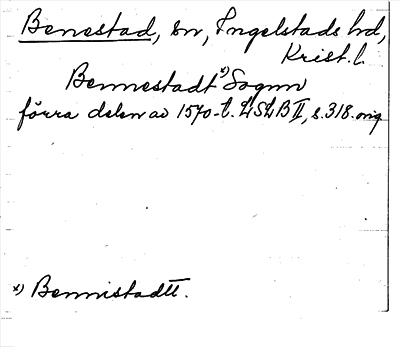 Benestad, sn, Ingelstads hd,
Krist. l.
Bennestadt x) Sognn
förra delen av 1570-t. LSLB II, s. 318. orig
x) Bennistadtt.